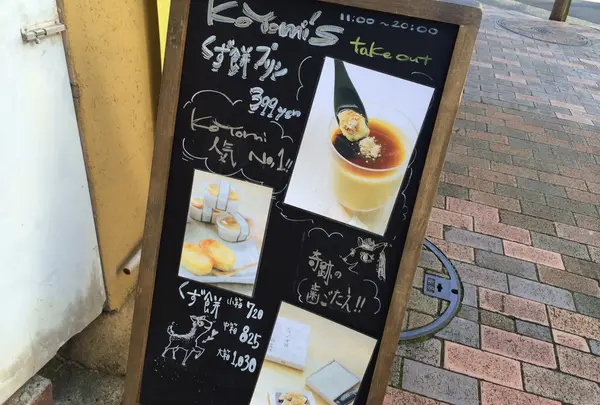 KoTomi's
11:00～20:00
take out
くず餅プリン
399yen
KoTomi
人気 No,1!!
奇跡の
歯ごたえ!!
くず餅 小箱 720
中箱 825
大箱 1,030